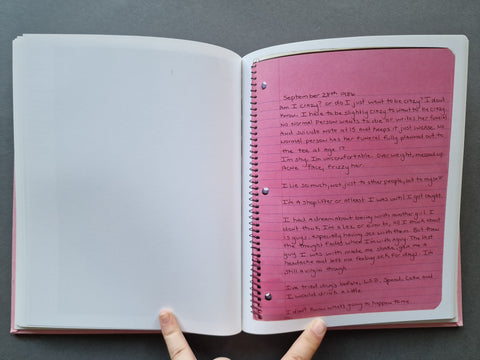 September 28th 1986
Am I crazy? or do I just want to be crazy? I dont
know. I have to be slightly crazy to want to be crazy.
No normal person wants to die or writes her funeral
and suicide note at 15 and keeps it just incase. No
normal person has her funeral fully planned out to
the tee at age 17.
I'm shy. I'm uncomfortable. Over weight, messed up
Acne face, frizzy hair.
I lie so much, not just to other people, but to myself
I'm a shoplifter or atleast I was until I got caught.
I had a dream about being with another girl. I
don't think I'm a Lez or Bi into it, all I think about
is guys, especially having sex with them. But then
the thought fades when I'm with a guy. The last
guy I was with made me shake, gave me a
headache and left me feeling sick for days. I'm
still a virgin though.
I've tried drugs before, L.S.D, Speed, Coke and
I would drink a little.
I don't know whats going to happen to me.